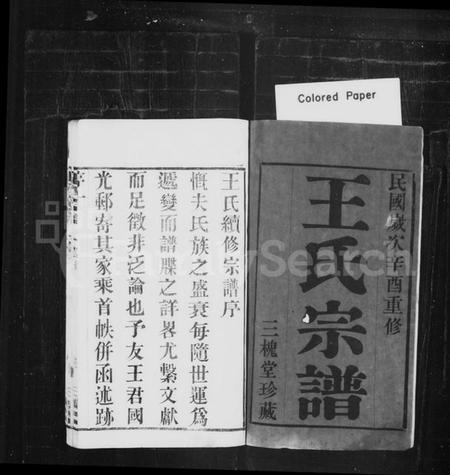 Colored Paper
民國歲次辛酉重修
王氏宗譜
三槐堂珍藏
王氏續修宗譜序
慨夫氏族之盛衰每隨世運為
遞變而譜牒之詳畧尤繫文獻
而足徵非泛論也予友王君國
光郵寄其家乘首帙併函述跡
FamilySearch